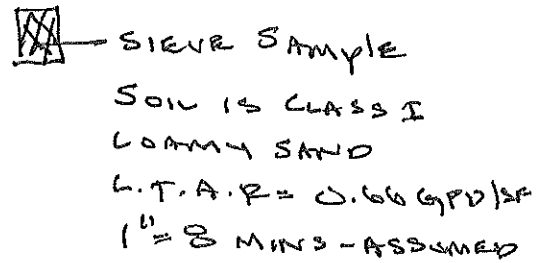 SIEVE SAMPLE
SOIL IS CLASS I
LOAMY SAND
L.T.A.R = 0.66 GPD/SF
1" = 8 MINS - ASSUMED